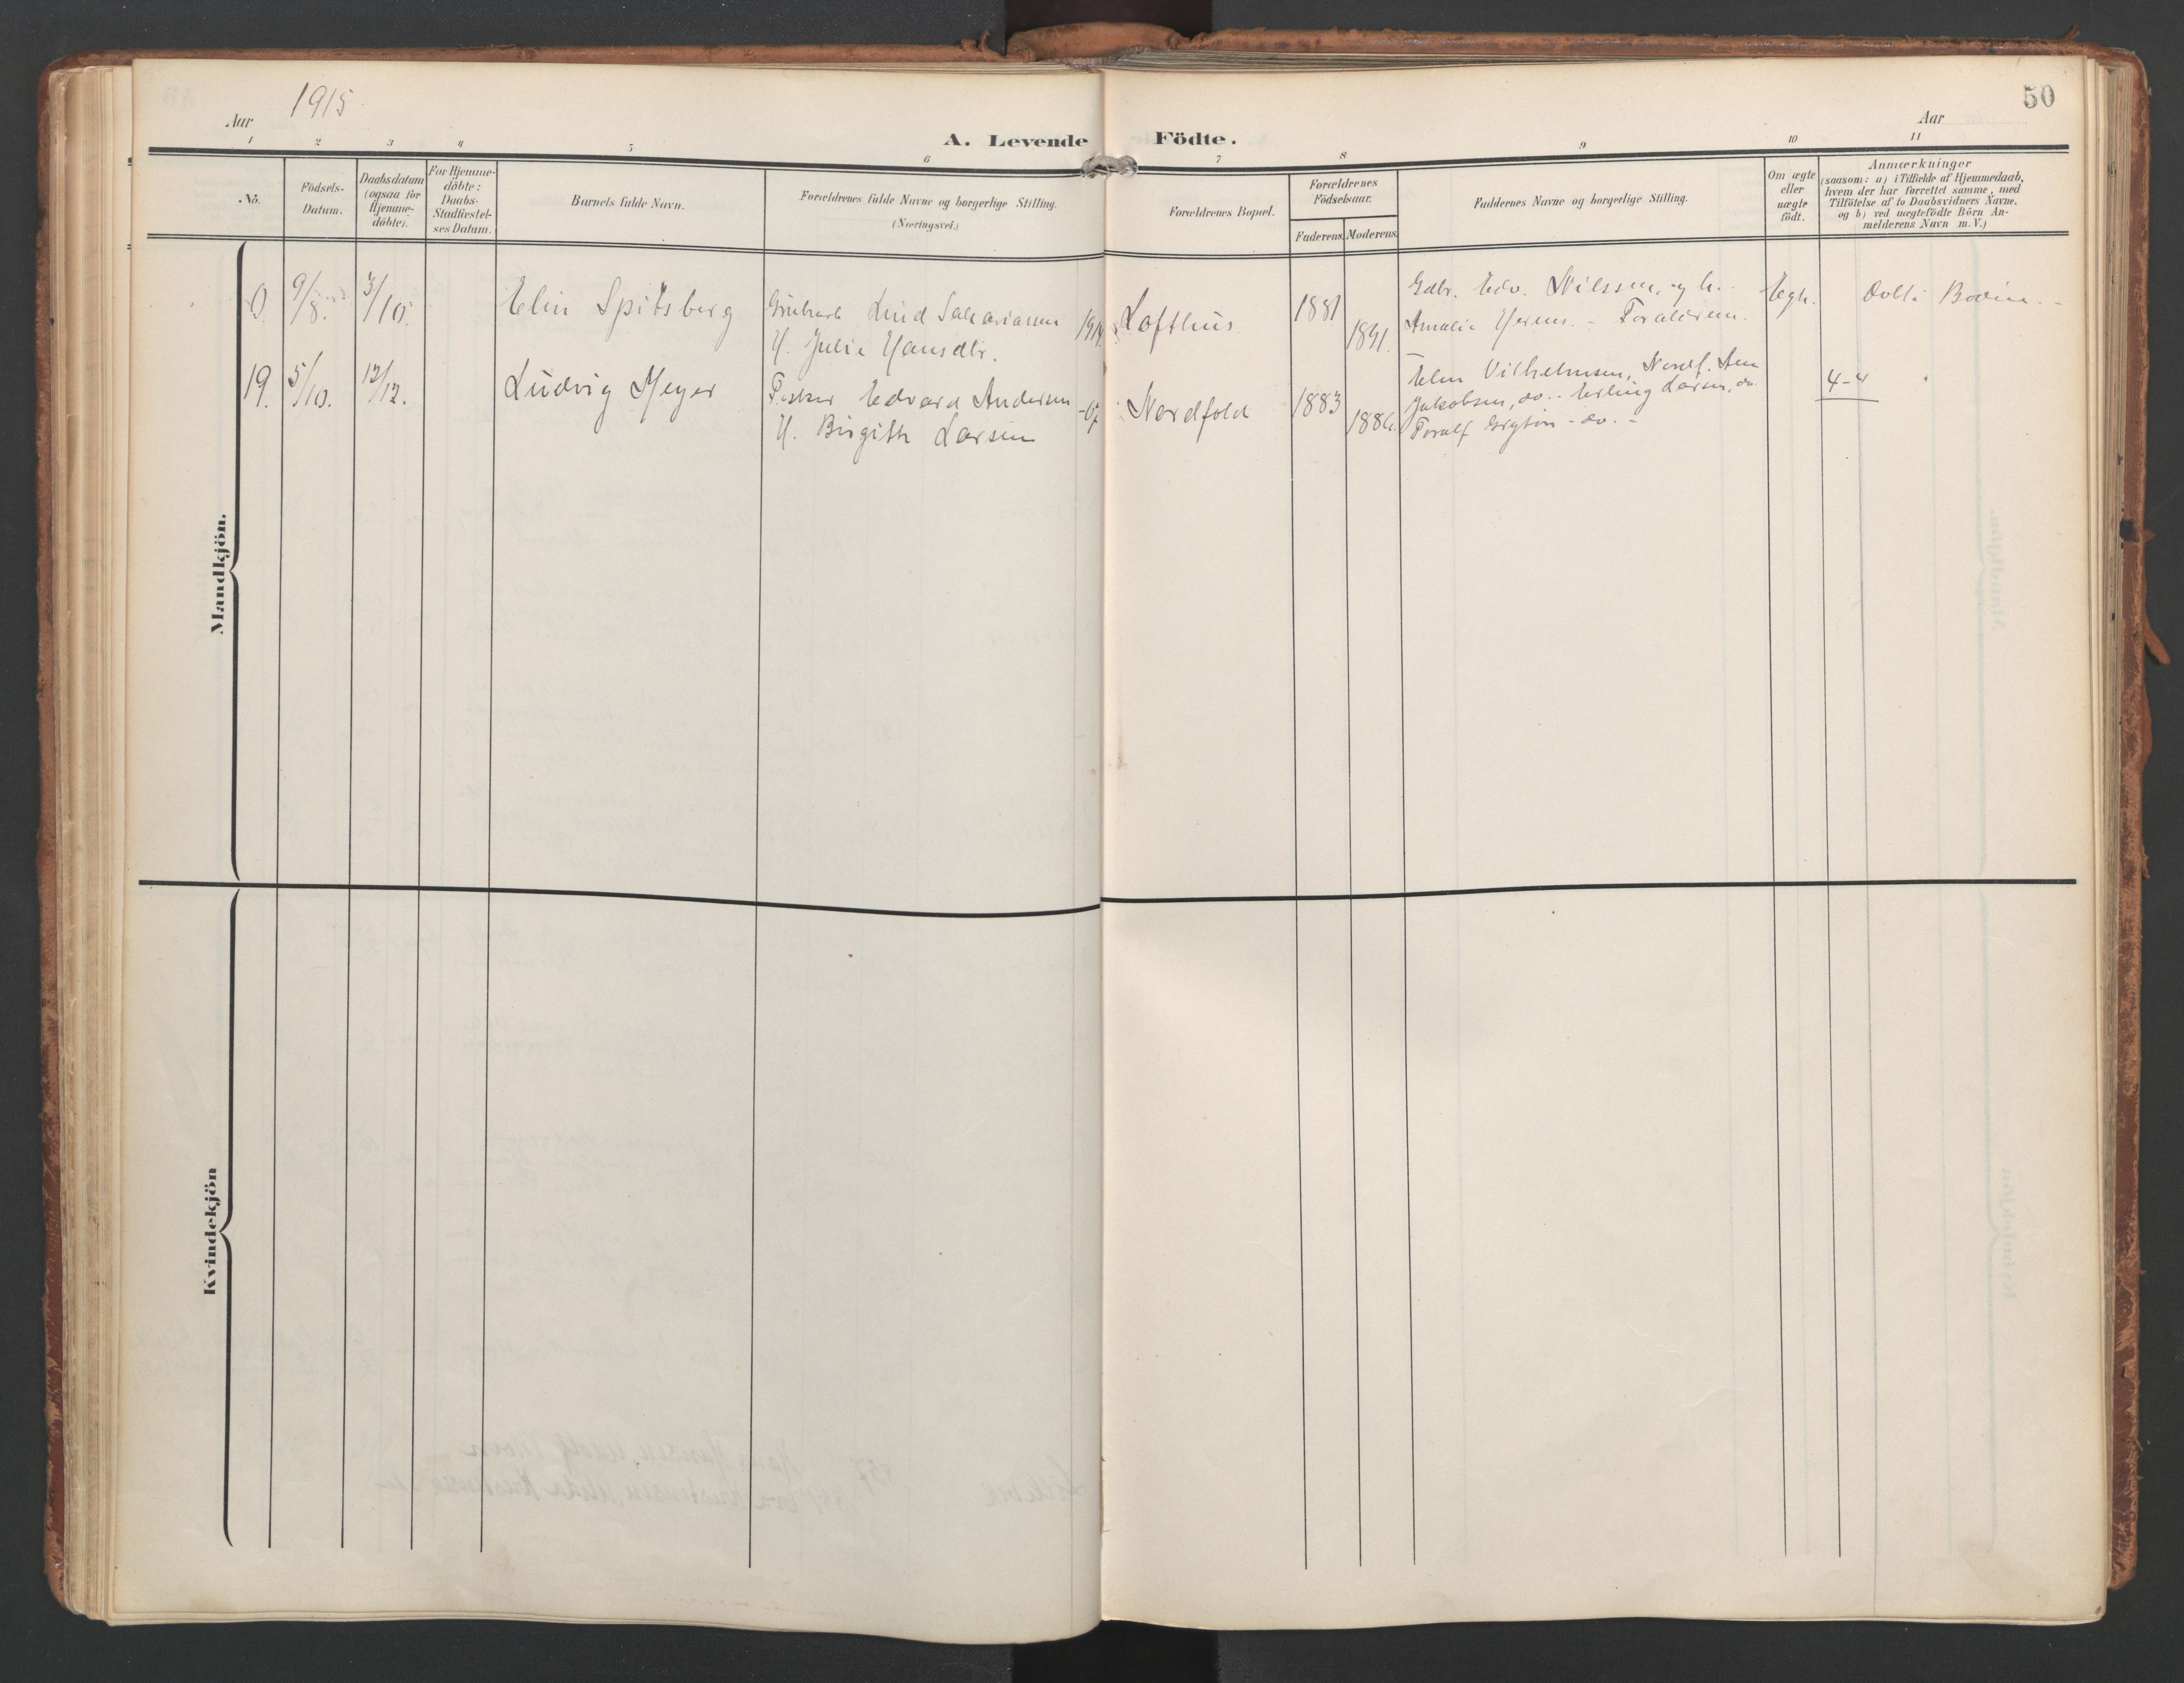 Aar 1915
50
Aar
1 2 3 4 5 6 7 8 9 10 11
A. Levende Födte.
No.
Födsels-
Datum.
Daabsdatum
(ogsaa for
Hjemme-
döbte).
For Hjemme-
döbte:
Daabs-
Stadfæstel-
ses Datum.
Barnets fulde Navn.
Forældrenes fulde Navne og borgerlige Stilling.
(Næringsvei.)
Forældrenes Bopæl.
Forældrenes
Födselsaar.
Faderens.
Moderens.
Faddernes Navne og borgerlige Stilling.
Om ægte
eller
uægte
födt.
Anmærkninger
(saasom: a) i Tilfælde af Hjemmedaab,
hvem der har forrettet samme, med
Tilföielse af to Daabsvidners Navne,
og b) ved uægtefödte Börn An-
melderens Navn m. V.)
Mandkjön.
0. 9/8. 3/10. Elin Spitsberg
Lofthus 1881 1891.
Gdbr. Edv. Nilssen, og h.
Amalie - Forældrene.
Egte. Döbt i Bodin. -
H. Julie Hansdtr.
19. 5/10. 12/12. Ludvig Meyer
Fisker Edvard Andersen -07
H. Birgith Larsen
Nordfold 1883 1886.
Elen Vilhelmsen, Nordf.
Jakobsen, do. - Erling Larsen, do.
Toralf - do. -
4-4
Kvindekjön